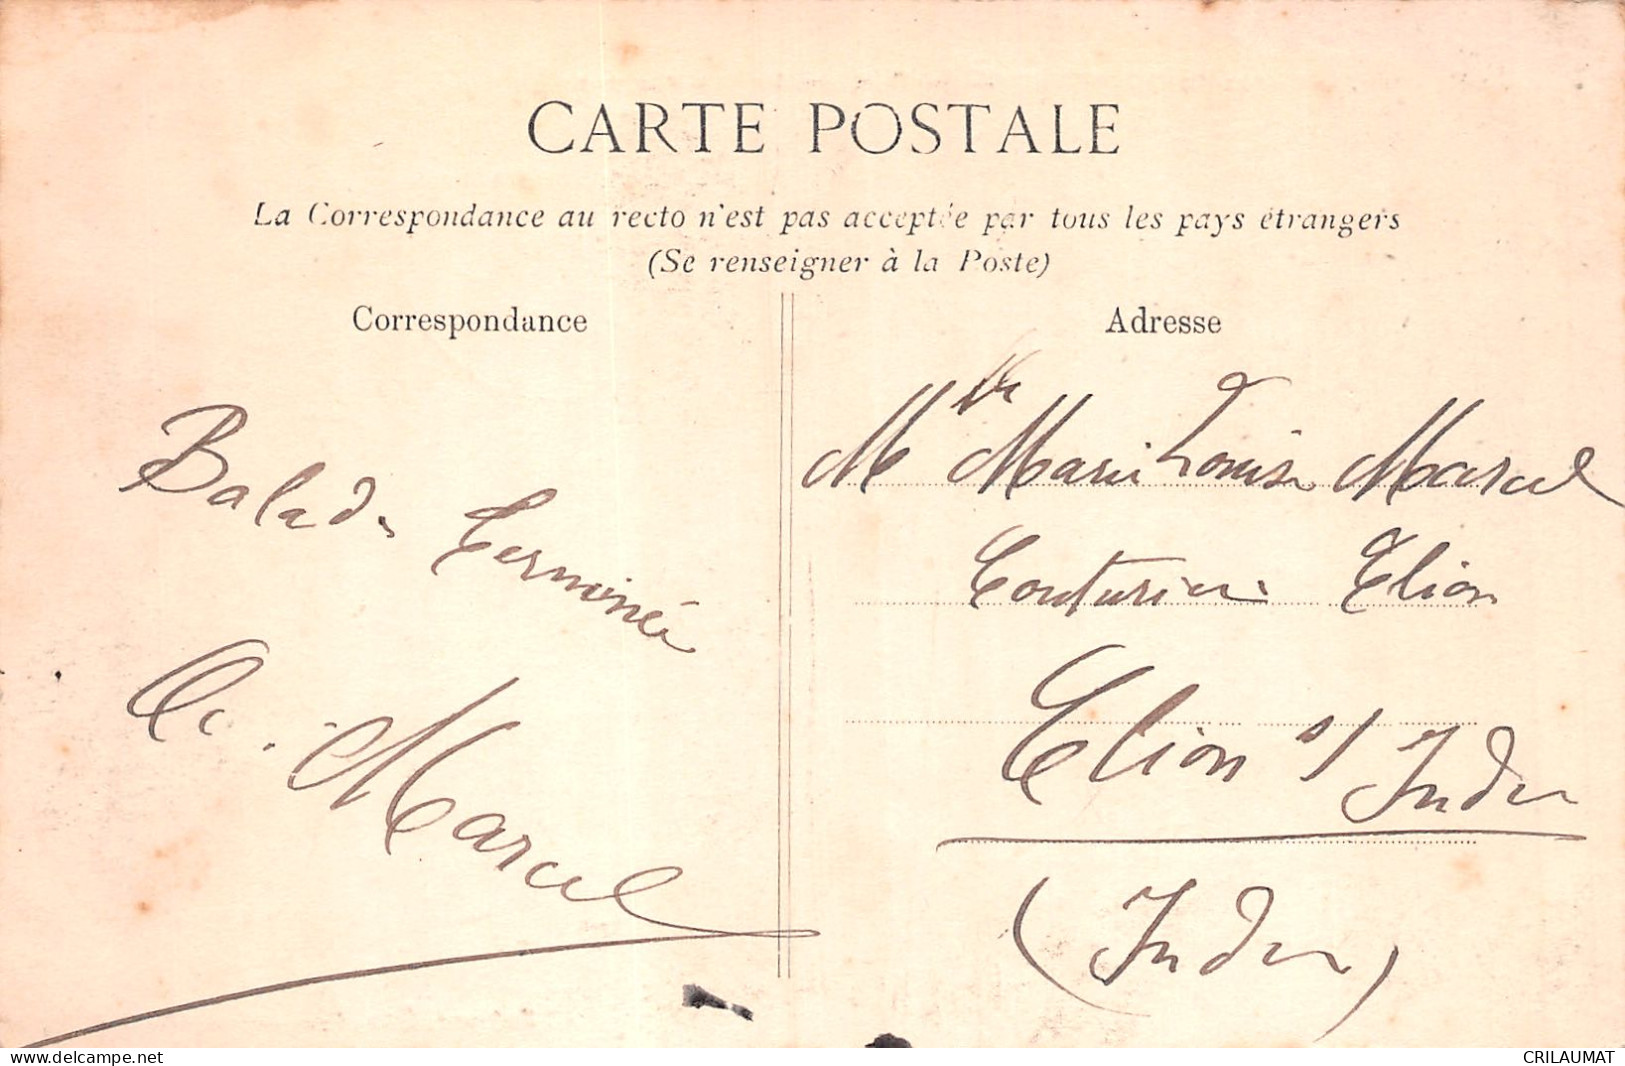 CARTE POSTALE
La Correspondance au recto n'est pas acceptée par tous les pays étrangers
(Se renseigner à la Poste)
Correspondance
Adresse
Balade terminée
Marcel
Mlle Marie Louise Marcel
Couturière Clion
Clion s/ Indre
(Indre)
delcampe.net
CRILAUMAT